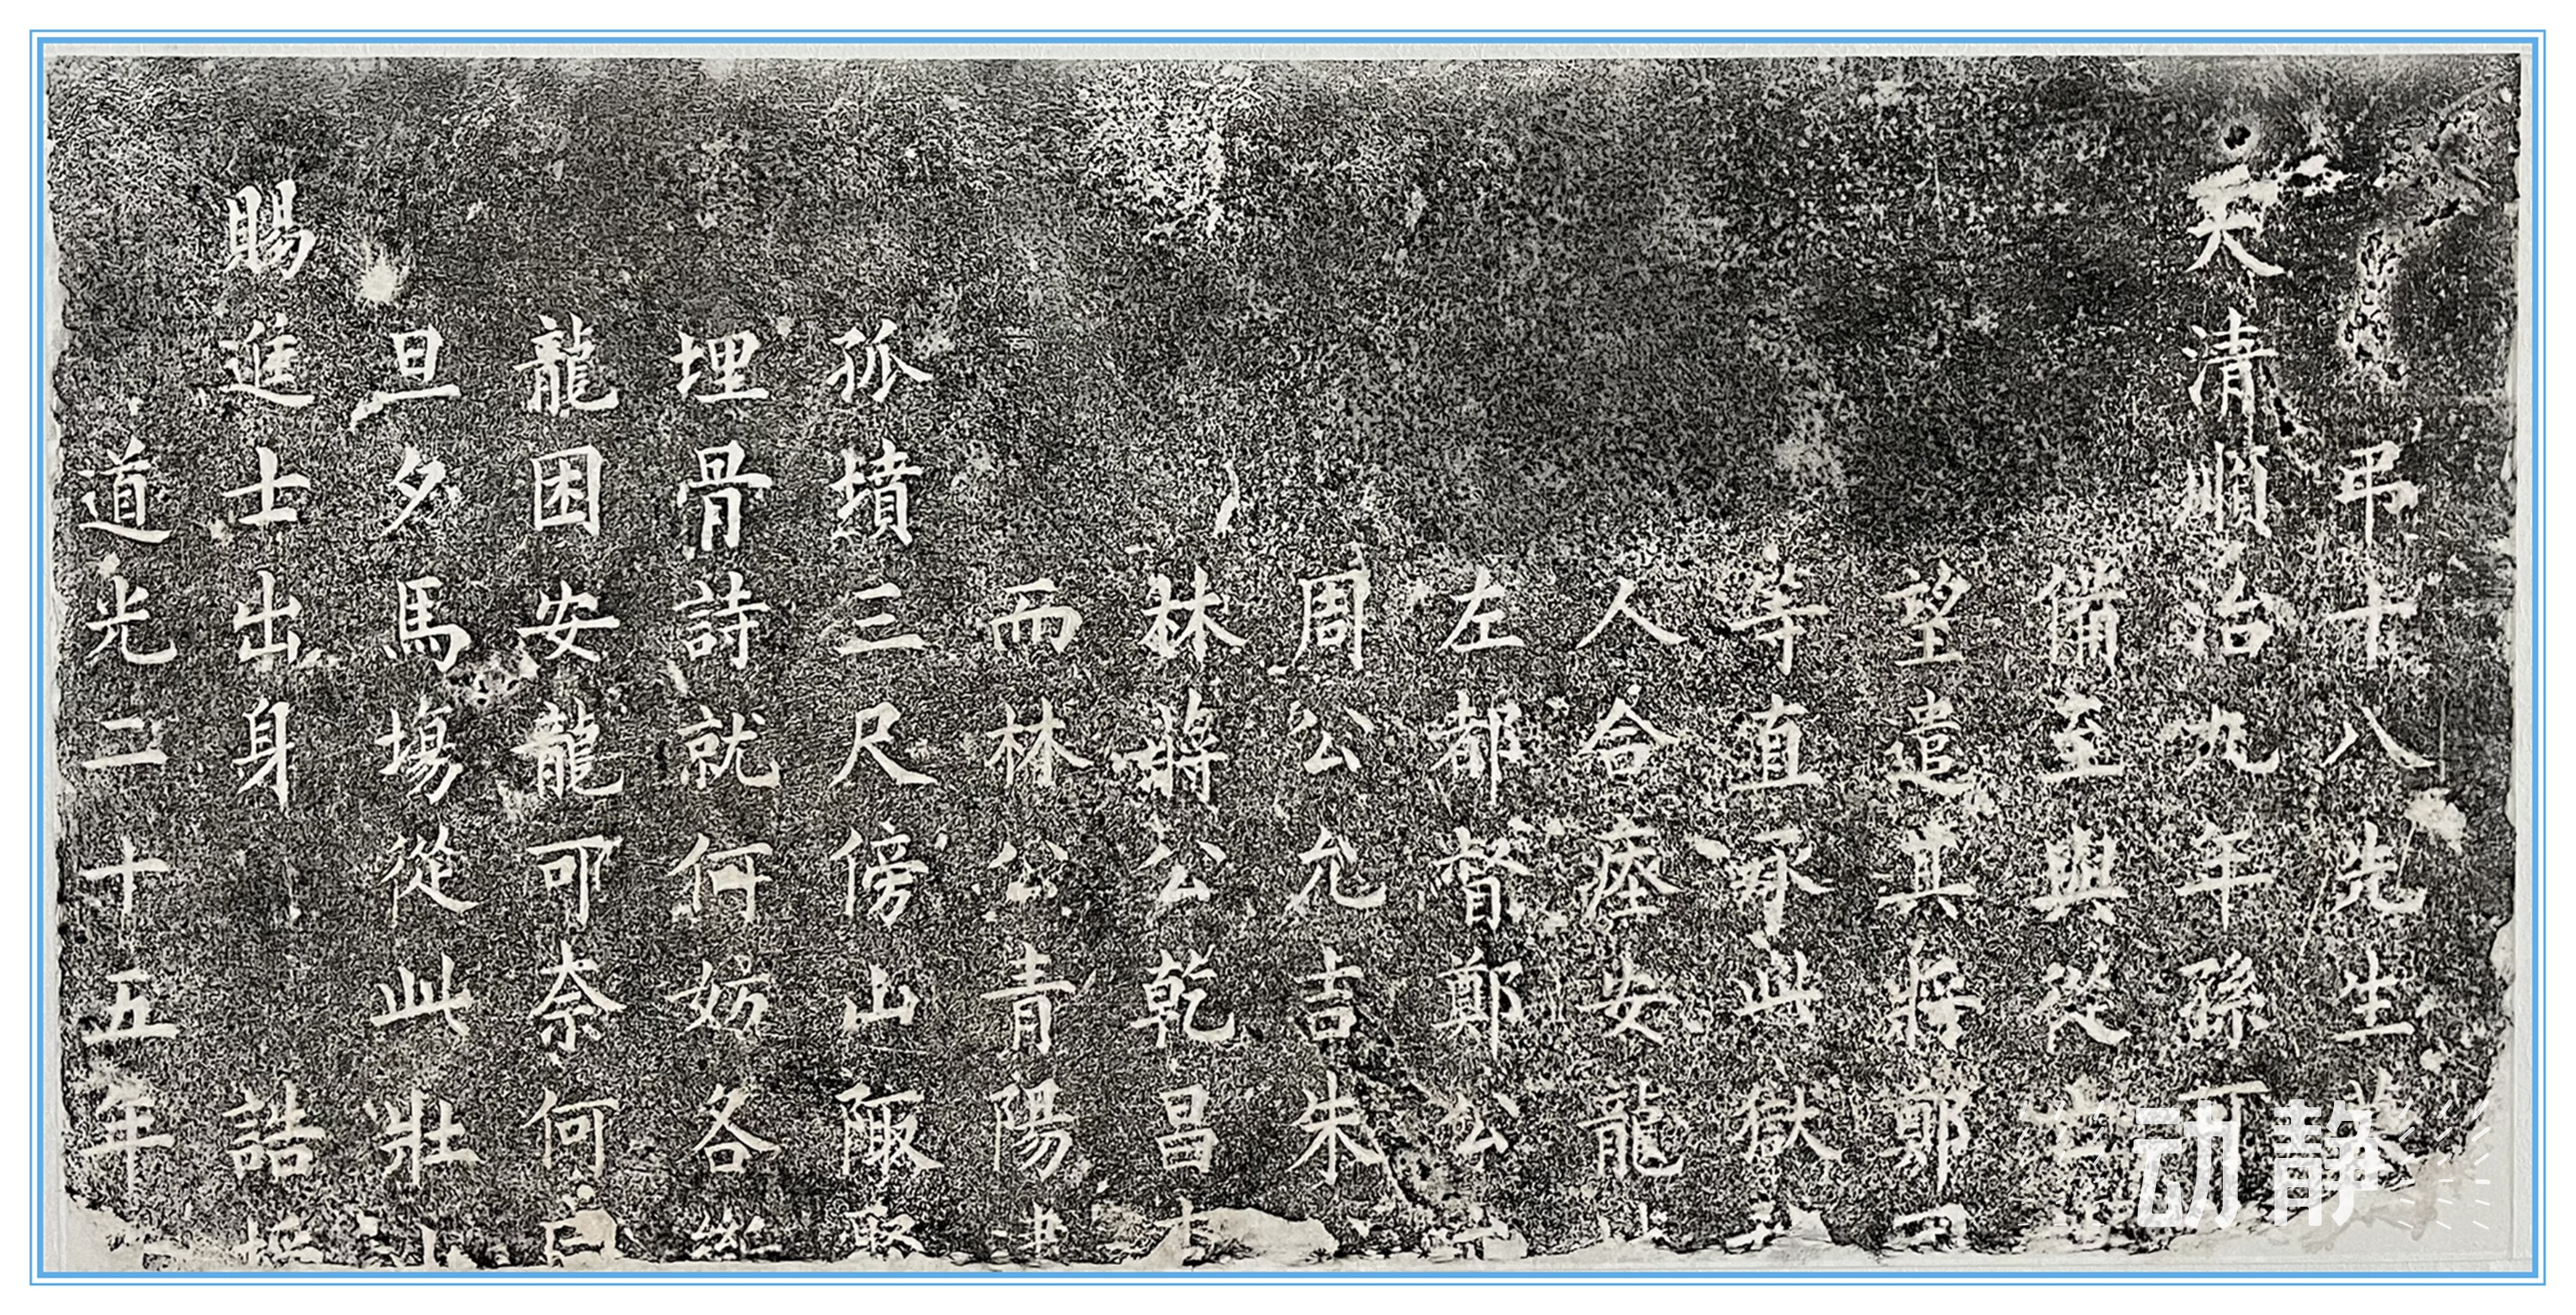 弔十八先生墓
天清順治九年孫可
備至與從
望遣其將鄭
等直承此獄
人合瘞安龍
左都督鄭公
周公允吉朱
林將公乾昌
而林公青陽
孤墳三尺傍山陬
埋骨詩就何妨各
龍困安龍可奈何
旦夕馬塲從此壯
賜進士出身 誥
道光二十五年
动静